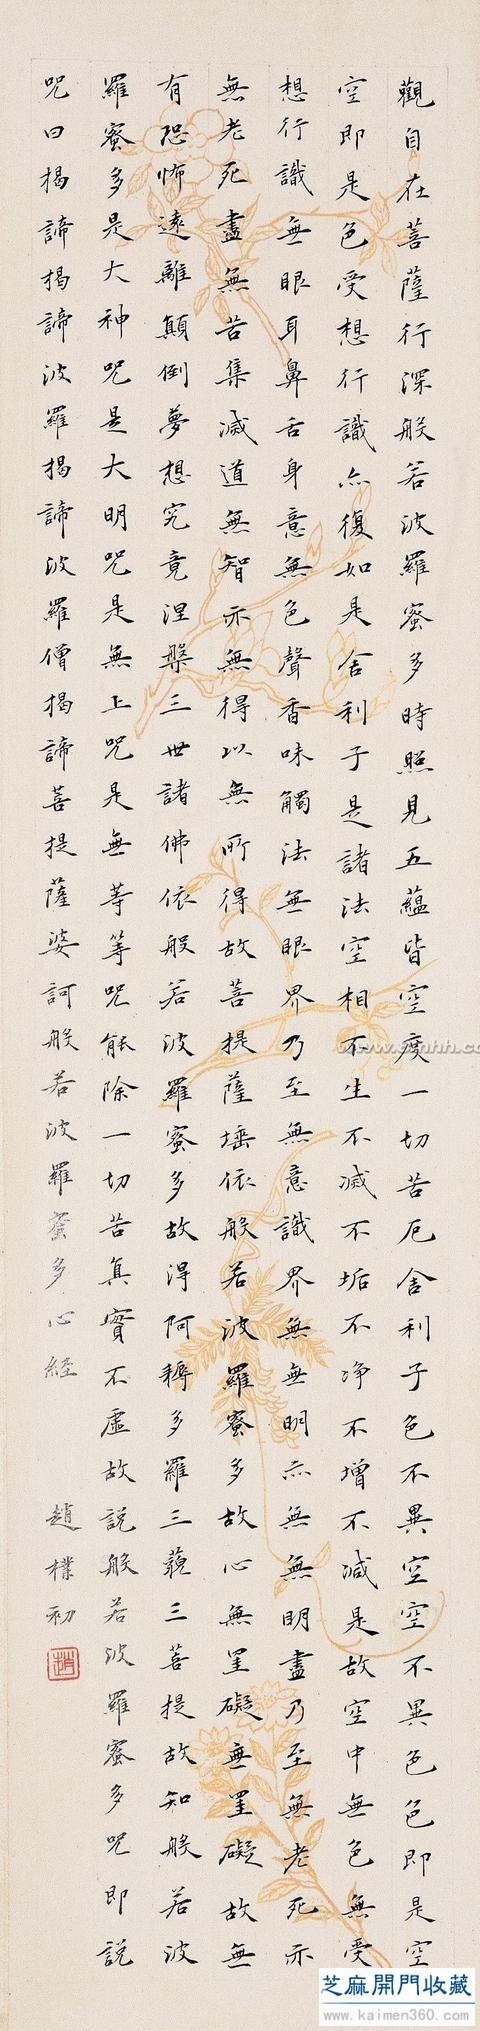 觀自在菩薩行深般若波羅蜜多時照見五蘊皆空度一切苦厄舍利子色不異空空不異色色即是空
空即是色受想行識亦復如是舍利子是諸法空相不生不滅不垢不淨不增不減是故空中無色無受
想行識無眼耳鼻舌身意無色聲香味觸法無眼界乃至無意識界無無明亦無無明盡乃至無老死亦
無老死盡無苦集滅道無智亦無得以無所得故菩提薩埵依般若波羅蜜多故心無罣礙無罣礙故無
有恐怖遠離顛倒夢想究竟涅槃三世諸佛依般若波羅蜜多故得阿耨多羅三藐三菩提故知般若波
羅蜜多是大神咒是大明咒是無上咒是無等等咒能除一切苦真實不虛故說般若波羅蜜多咒即說
咒曰揭諦揭諦波羅揭諦波羅僧揭諦菩提薩婆訶般若波羅蜜多心經 趙樸初
趙
芝麻開門收藏
www.kaimen360.com